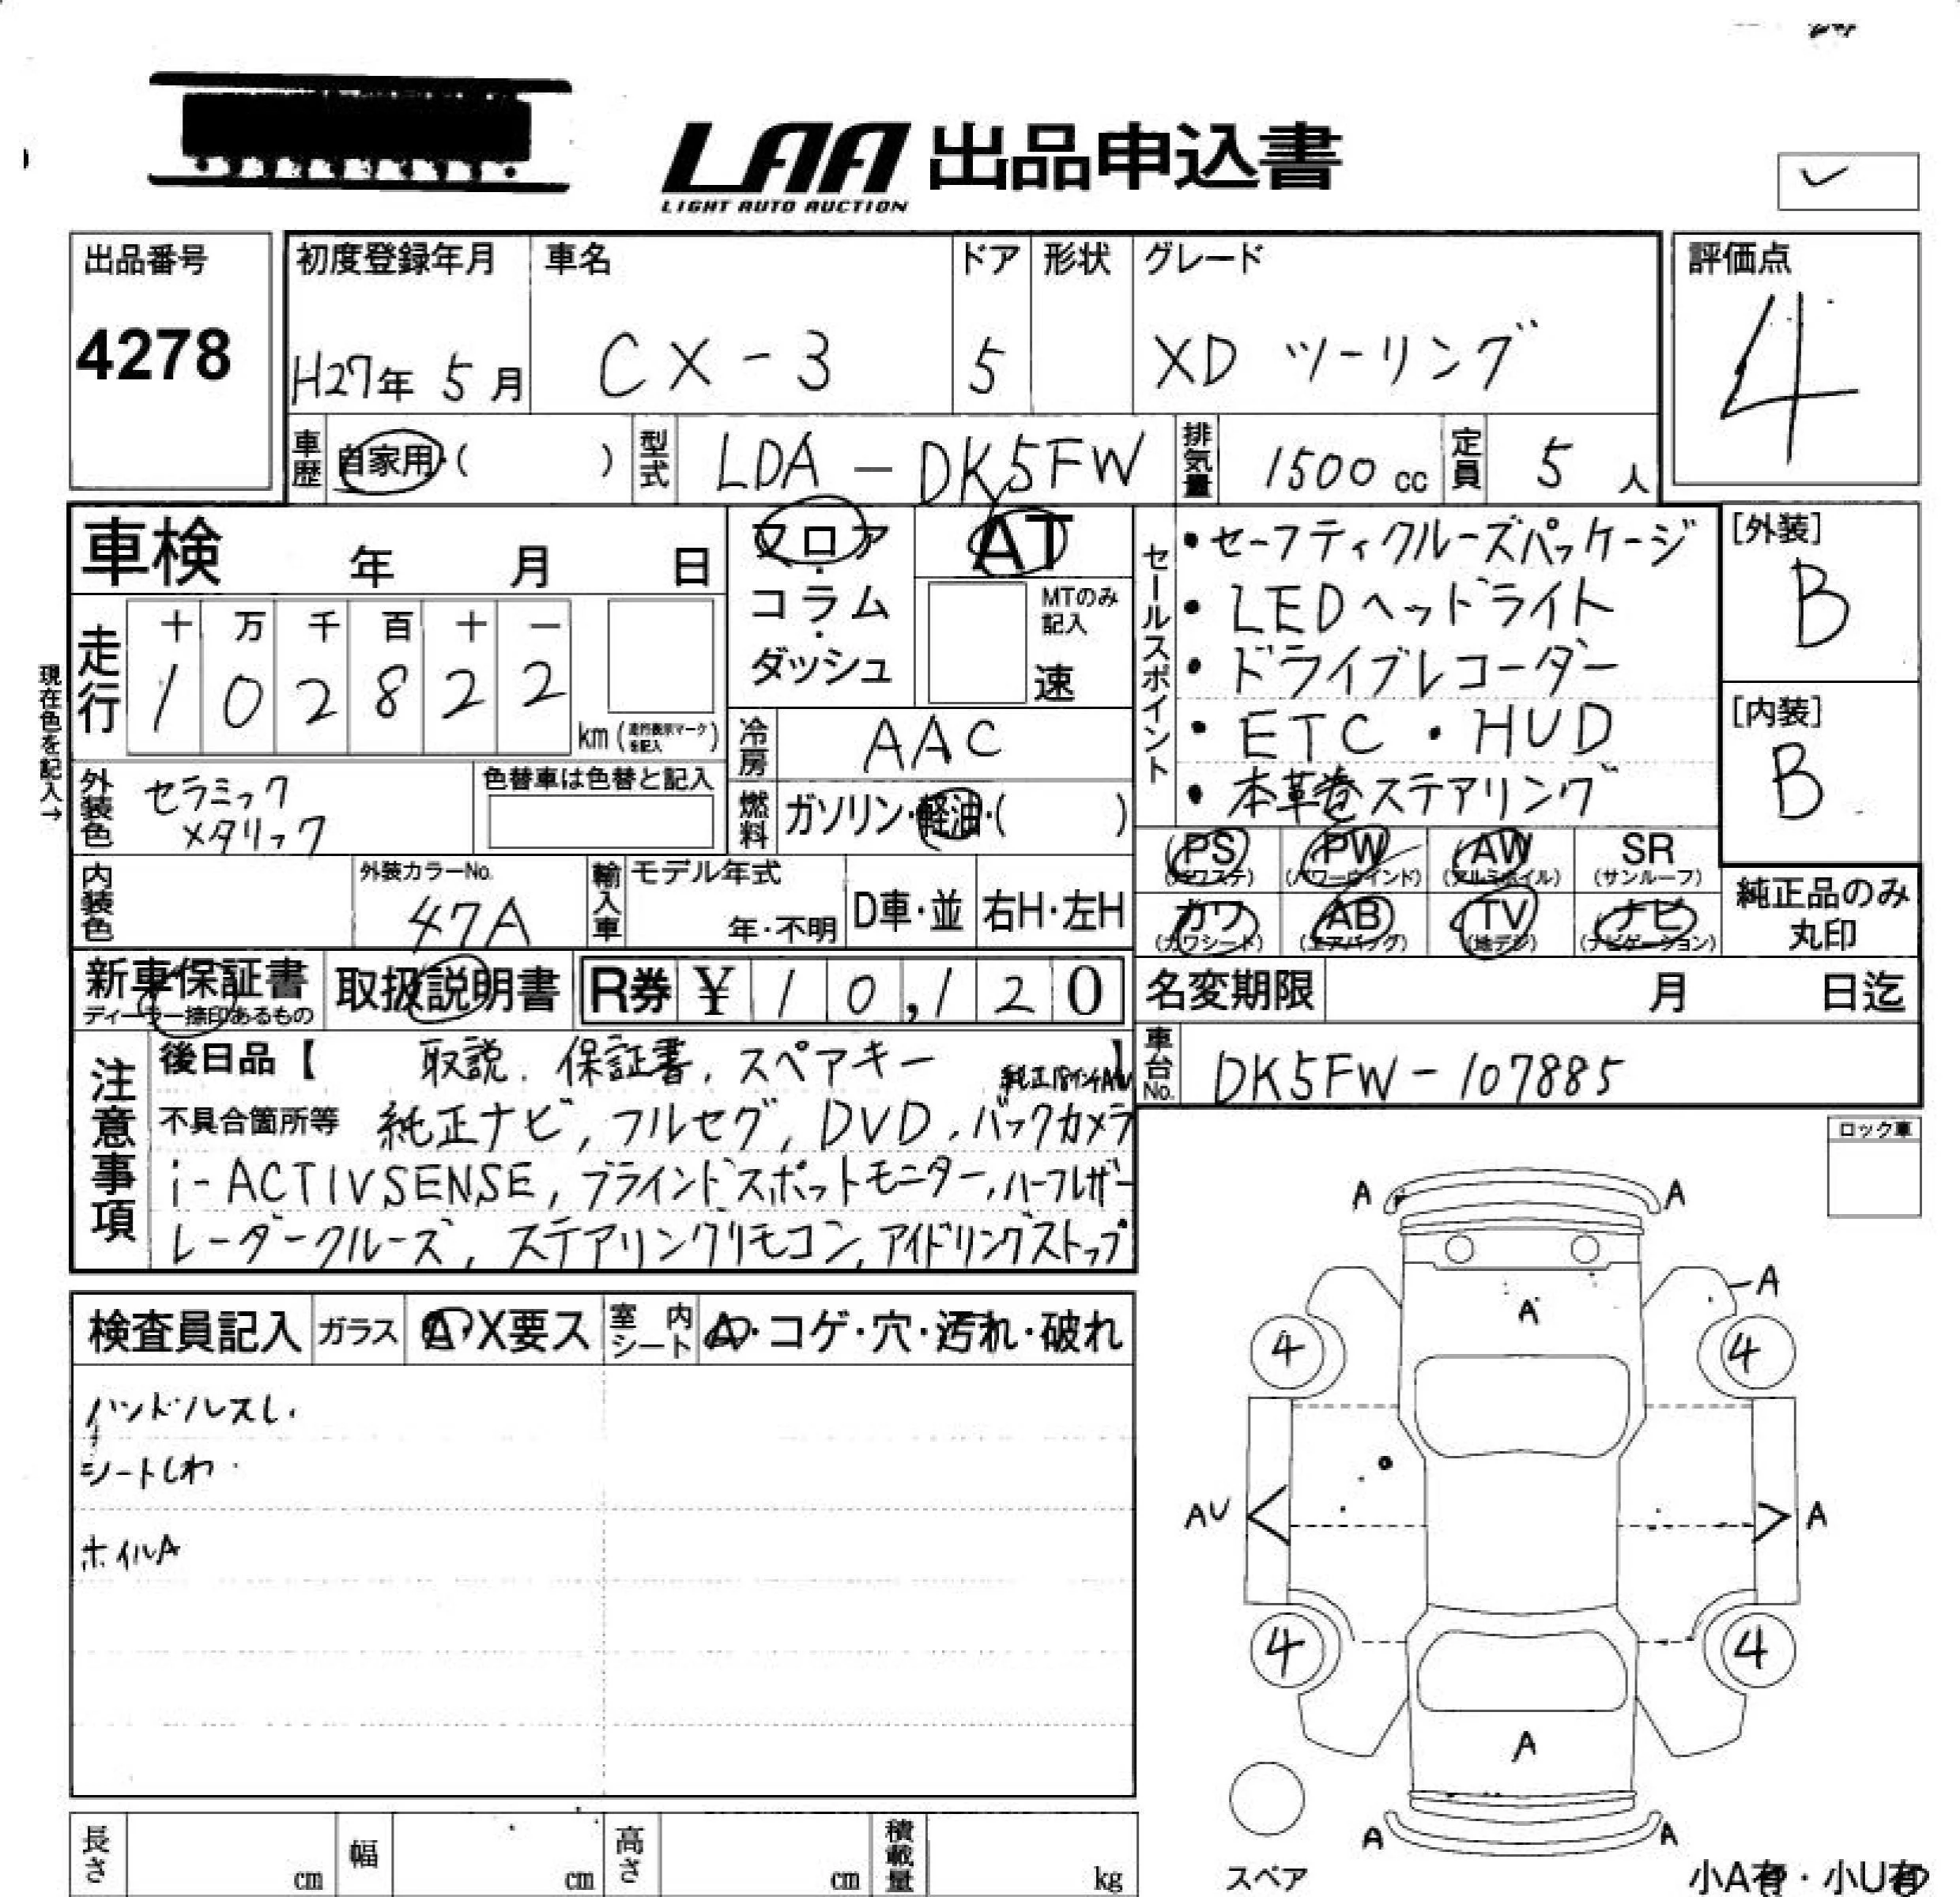 LAA 出品申込書
LIGHT AUTO AUCTION
出品番号
4278
初度登録年月
H27年 5月
車名
CX-3
ドア
5
形状
グレード
XD ツーリング
評価点
4
車歴 自家用・( )
型式 LDA-DK5FW
排気量 1500cc
定員 5人
車検 年 月 日
フロア・コラム・ダッシュ
AT
MTのみ記入
速
セールスポイント
・セーフティクルーズパッケージ
・LEDヘッドライト
・ドライブレコーダー
・ETC・HUD
・本革巻ステアリング
[外装]
B
[内装]
B
現在色を記入→
走行
十 万 千 百 十 一
1 0 2 8 2 2
km(走行表示マークを記入)
冷房 AAC
外装色 セラミックメタリック
色替車は色替と記入
燃料 ガソリン・軽油・( )
PS (パワステ) PW (パワーウインド) AW (アルミホイル) SR (サンルーフ)
カワ (カワシート) AB (エアバッグ) TV (地デジ) ナビ (ナビゲーション)
純正品のみ丸印
内装色
外装カラーNo.
47A
輸入車
モデル年式
年・不明
D車・並
右H・左H
新車保証書
ディーラー捺印あるもの
取扱説明書
R券 ¥10,120
名変期限 月 日迄
車台No. DK5FW-107885
注意事項
後日品【 取説、保証書、スペアキー 】
純正18インチAW
不具合箇所等 純正ナビ, フルセグ, DVD, バックカメラ
i-ACTIVSENSE, ブラインドスポットモニター, ハーフレザー
レーダークルーズ, ステアリングリモコン, アイドリングストップ
ロック車
検査員記入
ガラス A・X要ス
室内シート A・コゲ・穴・汚れ・破れ
ハンドルスレ.
シートしわ.
ホイルA
A A
A A
4 4
AU A
4 4
A
A A
スペア
小A有・小U有
長さ cm
幅 cm
高さ cm
積載量 kg